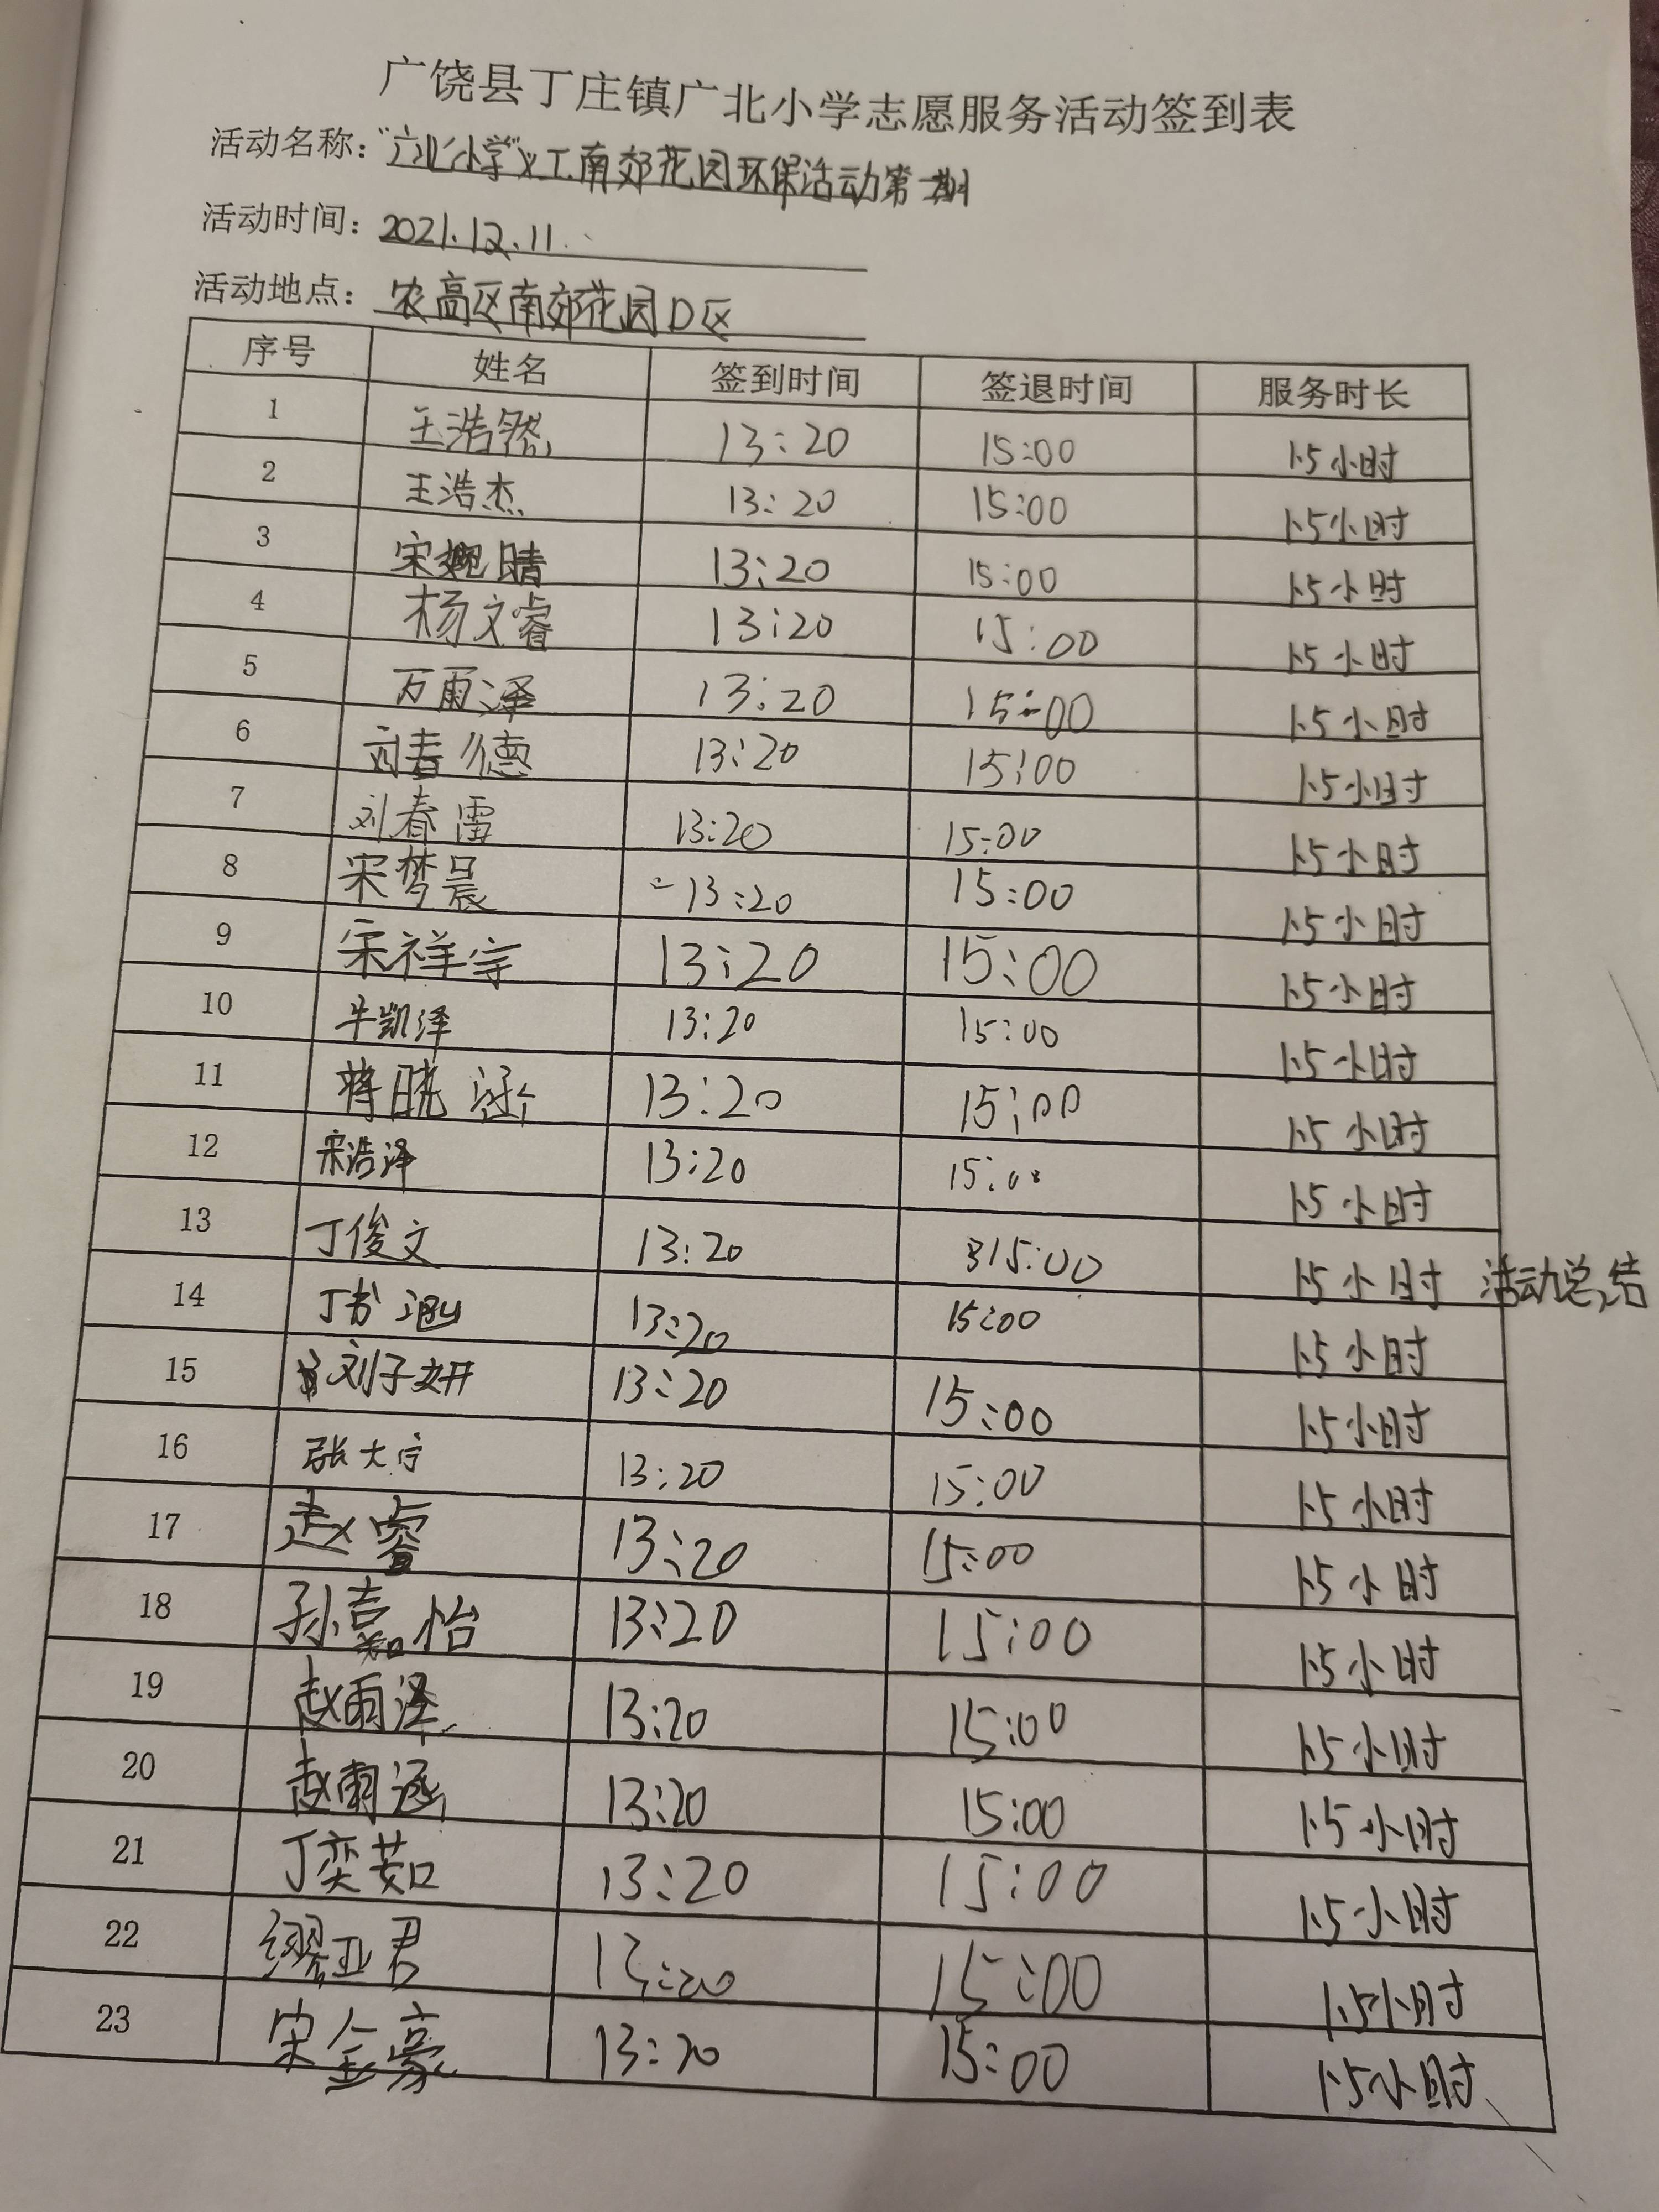 广饶县丁庄镇广北小学志愿服务活动签到表
活动名称：“广北小学”义工南郊花园环保活动第一期
活动时间：2021.12.11.
活动地点：农高区南郊花园D区
序号 姓名 签到时间 签退时间 服务时长
1 王浩然 13:20 15:00 1.5小时
2 王浩杰 13:20 15:00 1.5小时
3 宋婉晴 13:20 15:00 1.5小时
4 杨文睿 13:20 15:00 1.5小时
5 万雨泽 13:20 15:00 1.5小时
6 刘春德 13:20 15:00 1.5小时
7 刘春雷 13:20 15:00 1.5小时
8 宋梦晨 13:20 15:00 1.5小时
9 宋祥宗 13:20 15:00 1.5小时
10 牛凯泽 13:20 15:00 1.5小时
11 蒋晓涵 13:20 15:00 1.5小时
12 宋浩泽 13:20 15:00 1.5小时
13 丁俊文 13:20 15:00 1.5小时 活动总结
14 丁书 13:20 15:00 1.5小时
15 刘子妍 13:20 15:00 1.5小时
16 张大宇 13:20 15:00 1.5小时
17 赵睿 13:20 15:00 1.5小时
18 孙嘉怡 13:20 15:00 1.5小时
19 赵雨泽 13:20 15:00 1.5小时
20 赵雨涵 13:20 15:00 1.5小时
21 丁奕茹 13:20 15:00 1.5小时
22 缪亚君 13:20 15:00 1.5小时
23 宋金豪 13:20 15:00 1.5小时